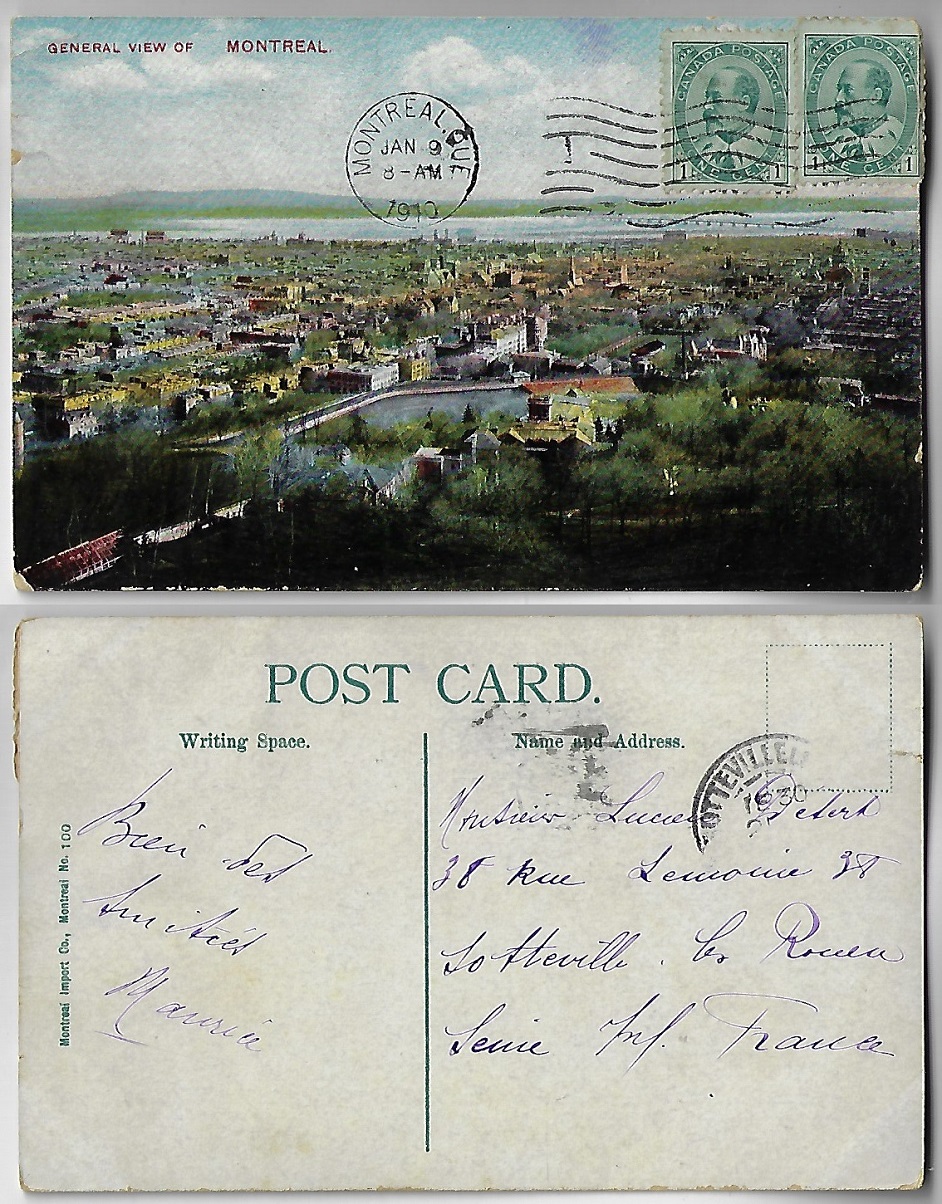 GENERAL VIEW OF MONTREAL.
CANADA POSTAGE
ONE CENT
1 1
CANADA POSTAGE
ONE CENT
1 1
MONTREAL, QUE
JAN 9
8-AM
1910
POST CARD.
Writing Space.
Name and Address.
OTTEVILLE
1830
Bien des
Amitiés
Maurice
Monsieur Lucien
38 Rue Lemoine 38
Sotteville. les Rouen
Seine Inf. France
Montreal Import Co., Montreal No. 100